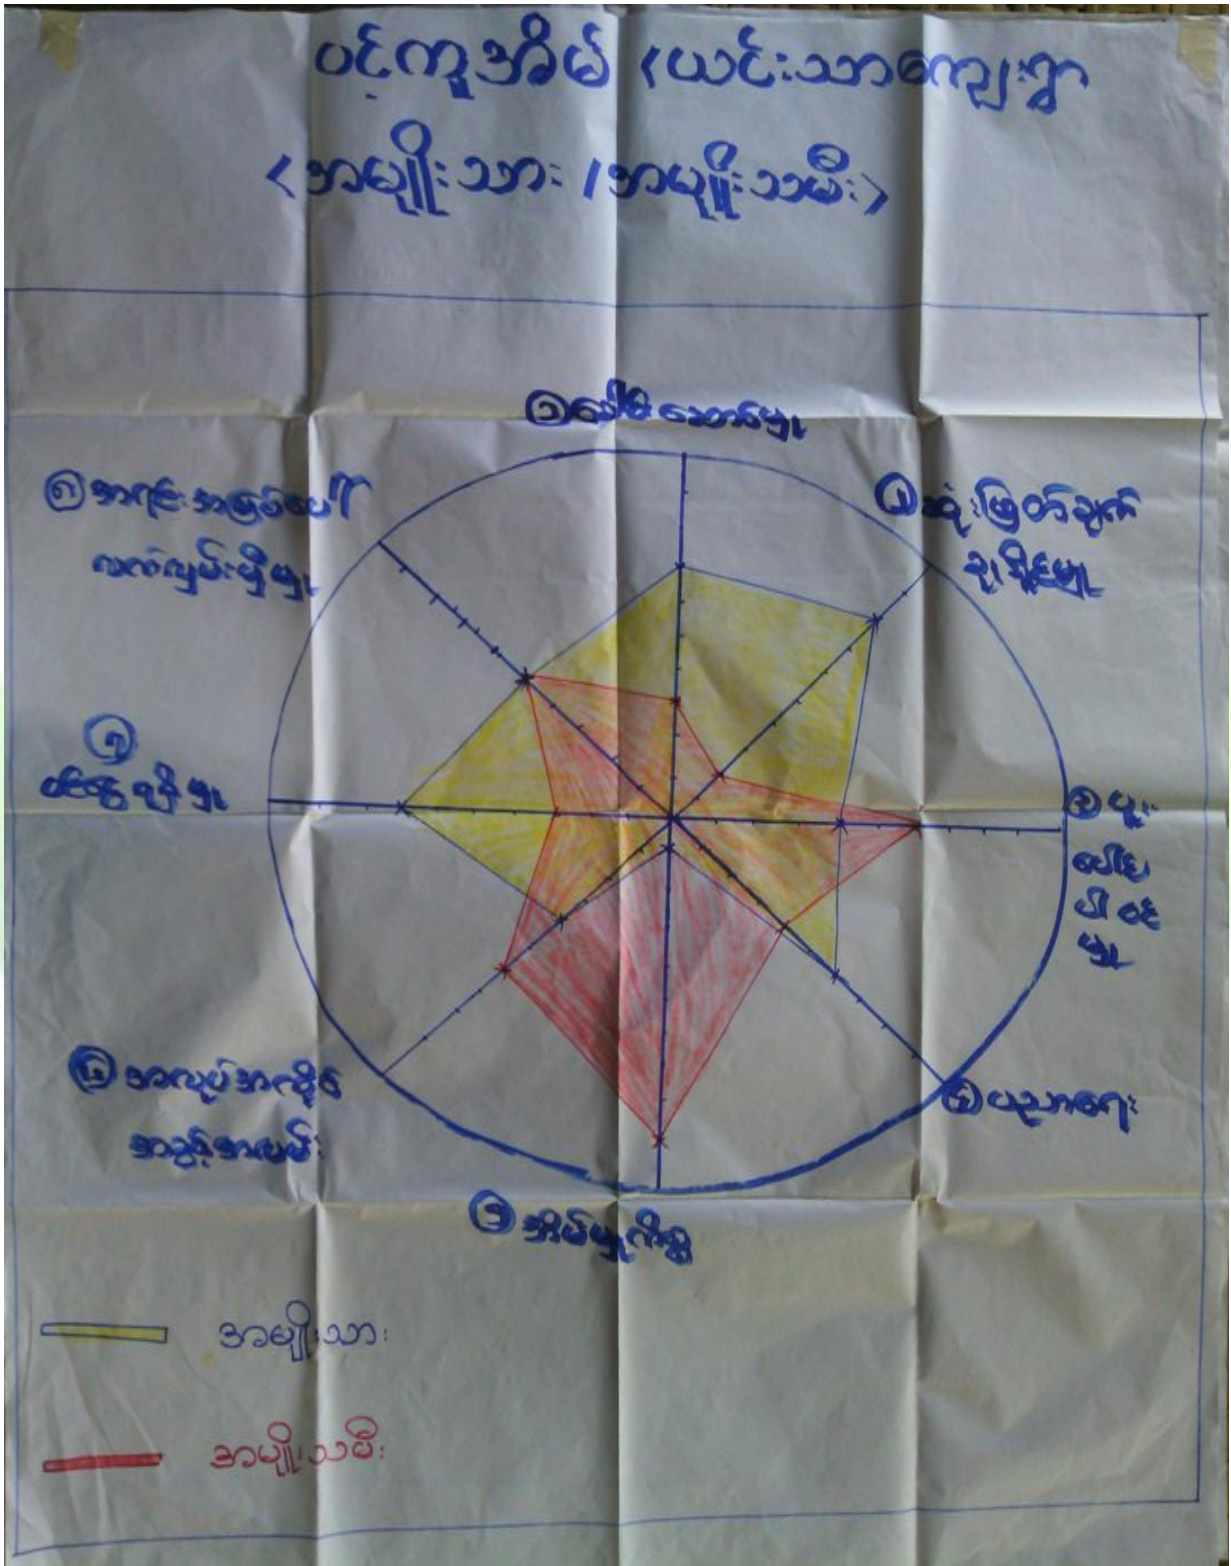 ပင့်ကူအိမ် (ယင်းသာကျေးရွာ
<အမျိုးသား / အမျိုးသမီး>
၁ ခေါင်းဆောင်မှု
၂ ဆုံးဖြတ်ချက်
ချနိုင်မှု
၃ ပူး
ပေါင်း
ပါဝင်
မှု
၄ ပညာရေး
၅ အိမ်မှုကိစ္စ
၆ အလုပ်အကိုင်
အခွင့်အလမ်း
၇
ဝင်ငွေရရှိမှု
၈ အရင်းအမြစ်ပေါ်
လက်လှမ်းမှီမှု
အမျိုးသား
အမျိုးသမီး